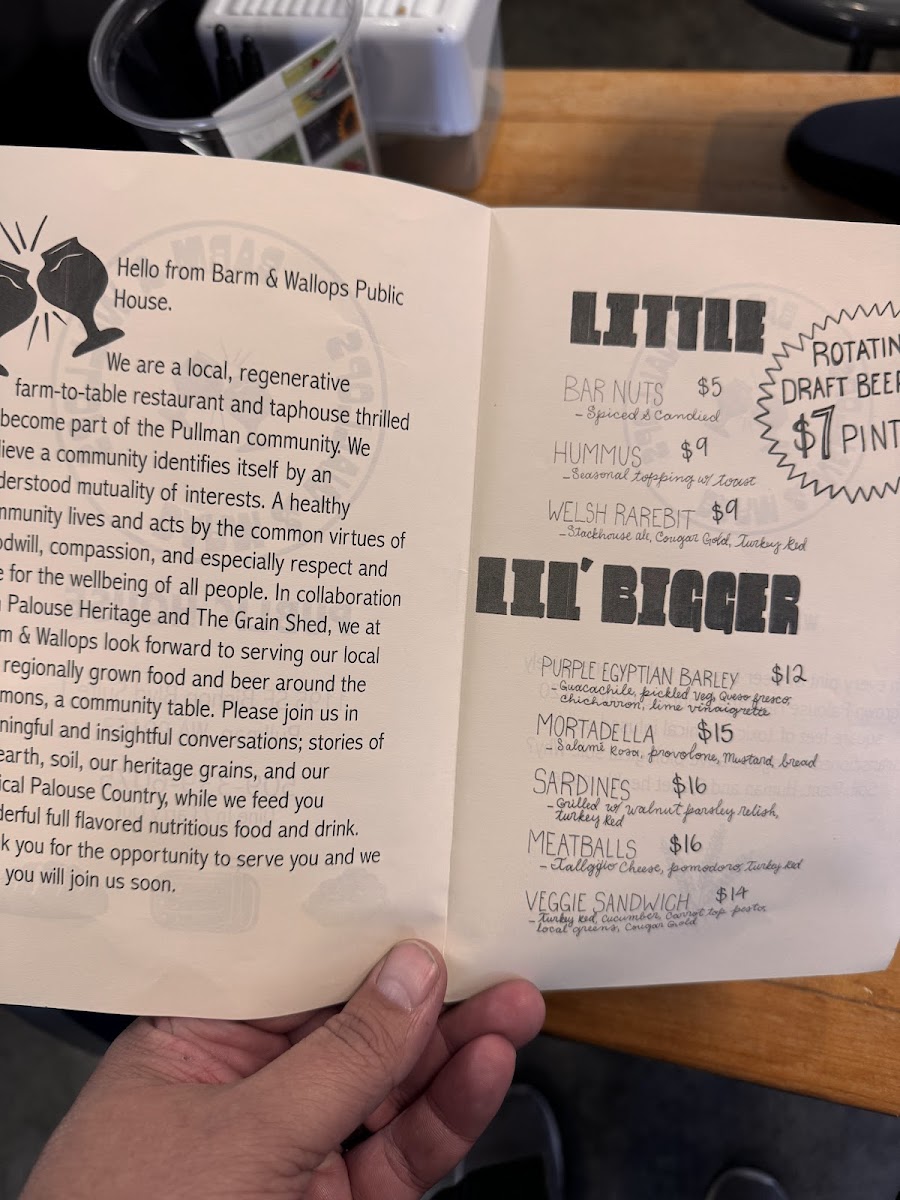 Hello from Barm & Wallops Public
House.
We are a local, regenerative
farm-to-table restaurant and taphouse thrilled
become part of the Pullman community. We
lieve a community identifies itself by an
derstood mutuality of interests. A healthy
mmunity lives and acts by the common virtues of
odwill, compassion, and especially respect and
e for the wellbeing of all people. In collaboration
Palouse Heritage and The Grain Shed, we at
m & Wallops look forward to serving our local
regionally grown food and beer around the
mons, a community table. Please join us in
ningful and insightful conversations; stories of
earth, soil, our heritage grains, and our
ical Palouse Country, while we feed you
derful full flavored nutritious food and drink.
k you for the opportunity to serve you and we
you will join us soon.
LITTLE
BAR NUTS $5
- Spiced & Candied
HUMMUS $9
- Seasonal topping w/ toast
WELSH RAREBIT $9
- Stackhouse ale, Cougar Gold, Turkey Red
ROTATIN
DRAFT BEER
$7 PINT
LIL' BIGGER
PURPLE EGYPTIAN BARLEY $12
- Guacachile, pickled veg, Queso fresco,
chicharron, lime vinaigrette
MORTADELLA $15
- Salame Rosa, provolone, Mustard, bread
SARDINES $16
- Grilled w/ walnut parsley relish,
turkey Red
MEATBALLS $16
- Tallggio Cheese, pomodoro, Turkey Red
VEGGIE SANDWICH $14
- Turkey Red, Cucumber, Carrot top pesto,
local greens, Cougar Gold